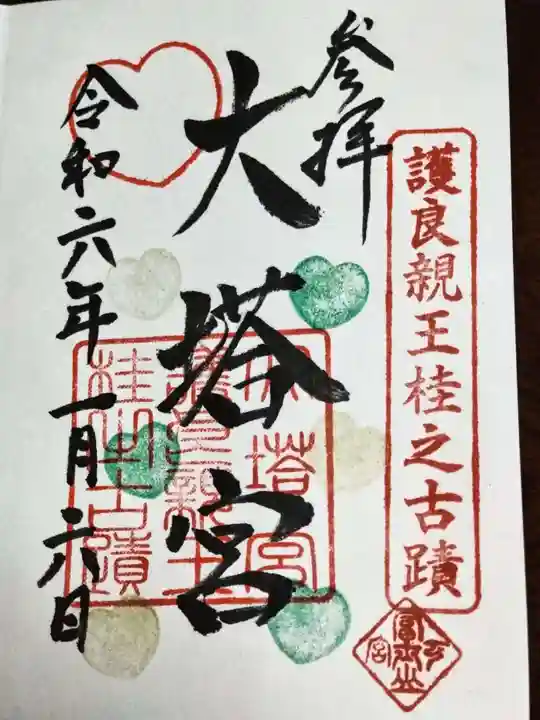 護良親王桂之古蹟
参拝
大塔宮
大塔宮
護良親王
桂之古蹟
令和六年一月六日